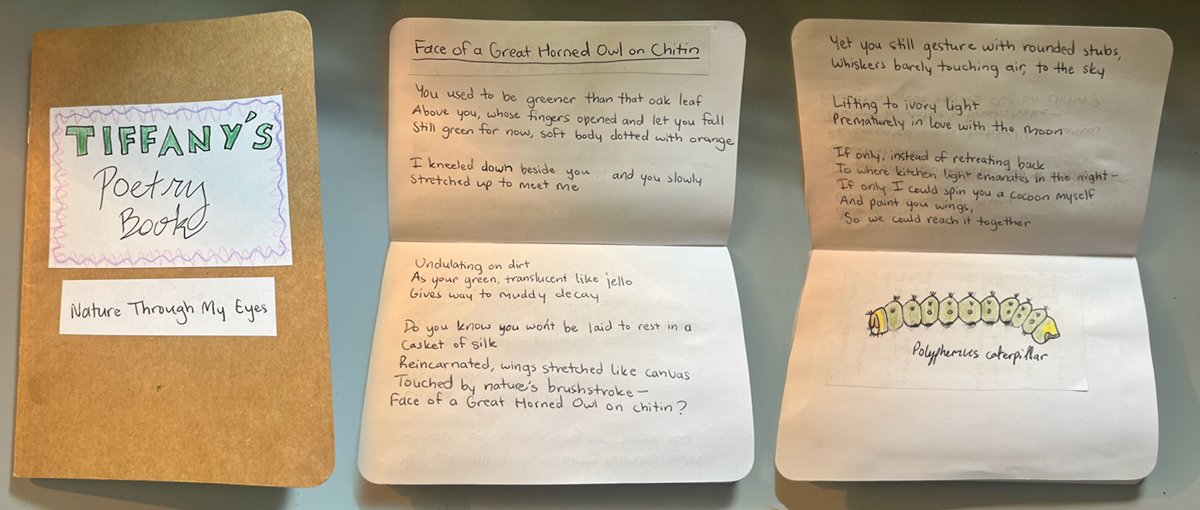 TIFFANY'S
Poetry
Book
Nature Through My Eyes
Face of a Great Horned Owl on Chitin
You used to be greener than that oak leaf
Above you, whose fingers opened and let you fall
Still green for now, soft body dotted with orange
I kneeled down beside you and you slowly
Stretched up to meet me
Undulating on dirt
As your green, translucent like jello
Gives way to muddy decay
Do you know you won't be laid to rest in a
Casket of silk
Reincarnated, wings stretched like canvas
Touched by nature's brushstroke—
Face of a Great Horned Owl on chitin?
Yet you still gesture with rounded stubs,
Whiskers barely touching air, to the sky
Lifting to ivory light
Prematurely in love with the moon
If only, instead of retreating back
To where kitchen light emanates in the night—
If only I could spin you a cocoon myself
And paint you wings,
So we could reach it together
Polyphemus caterpillar